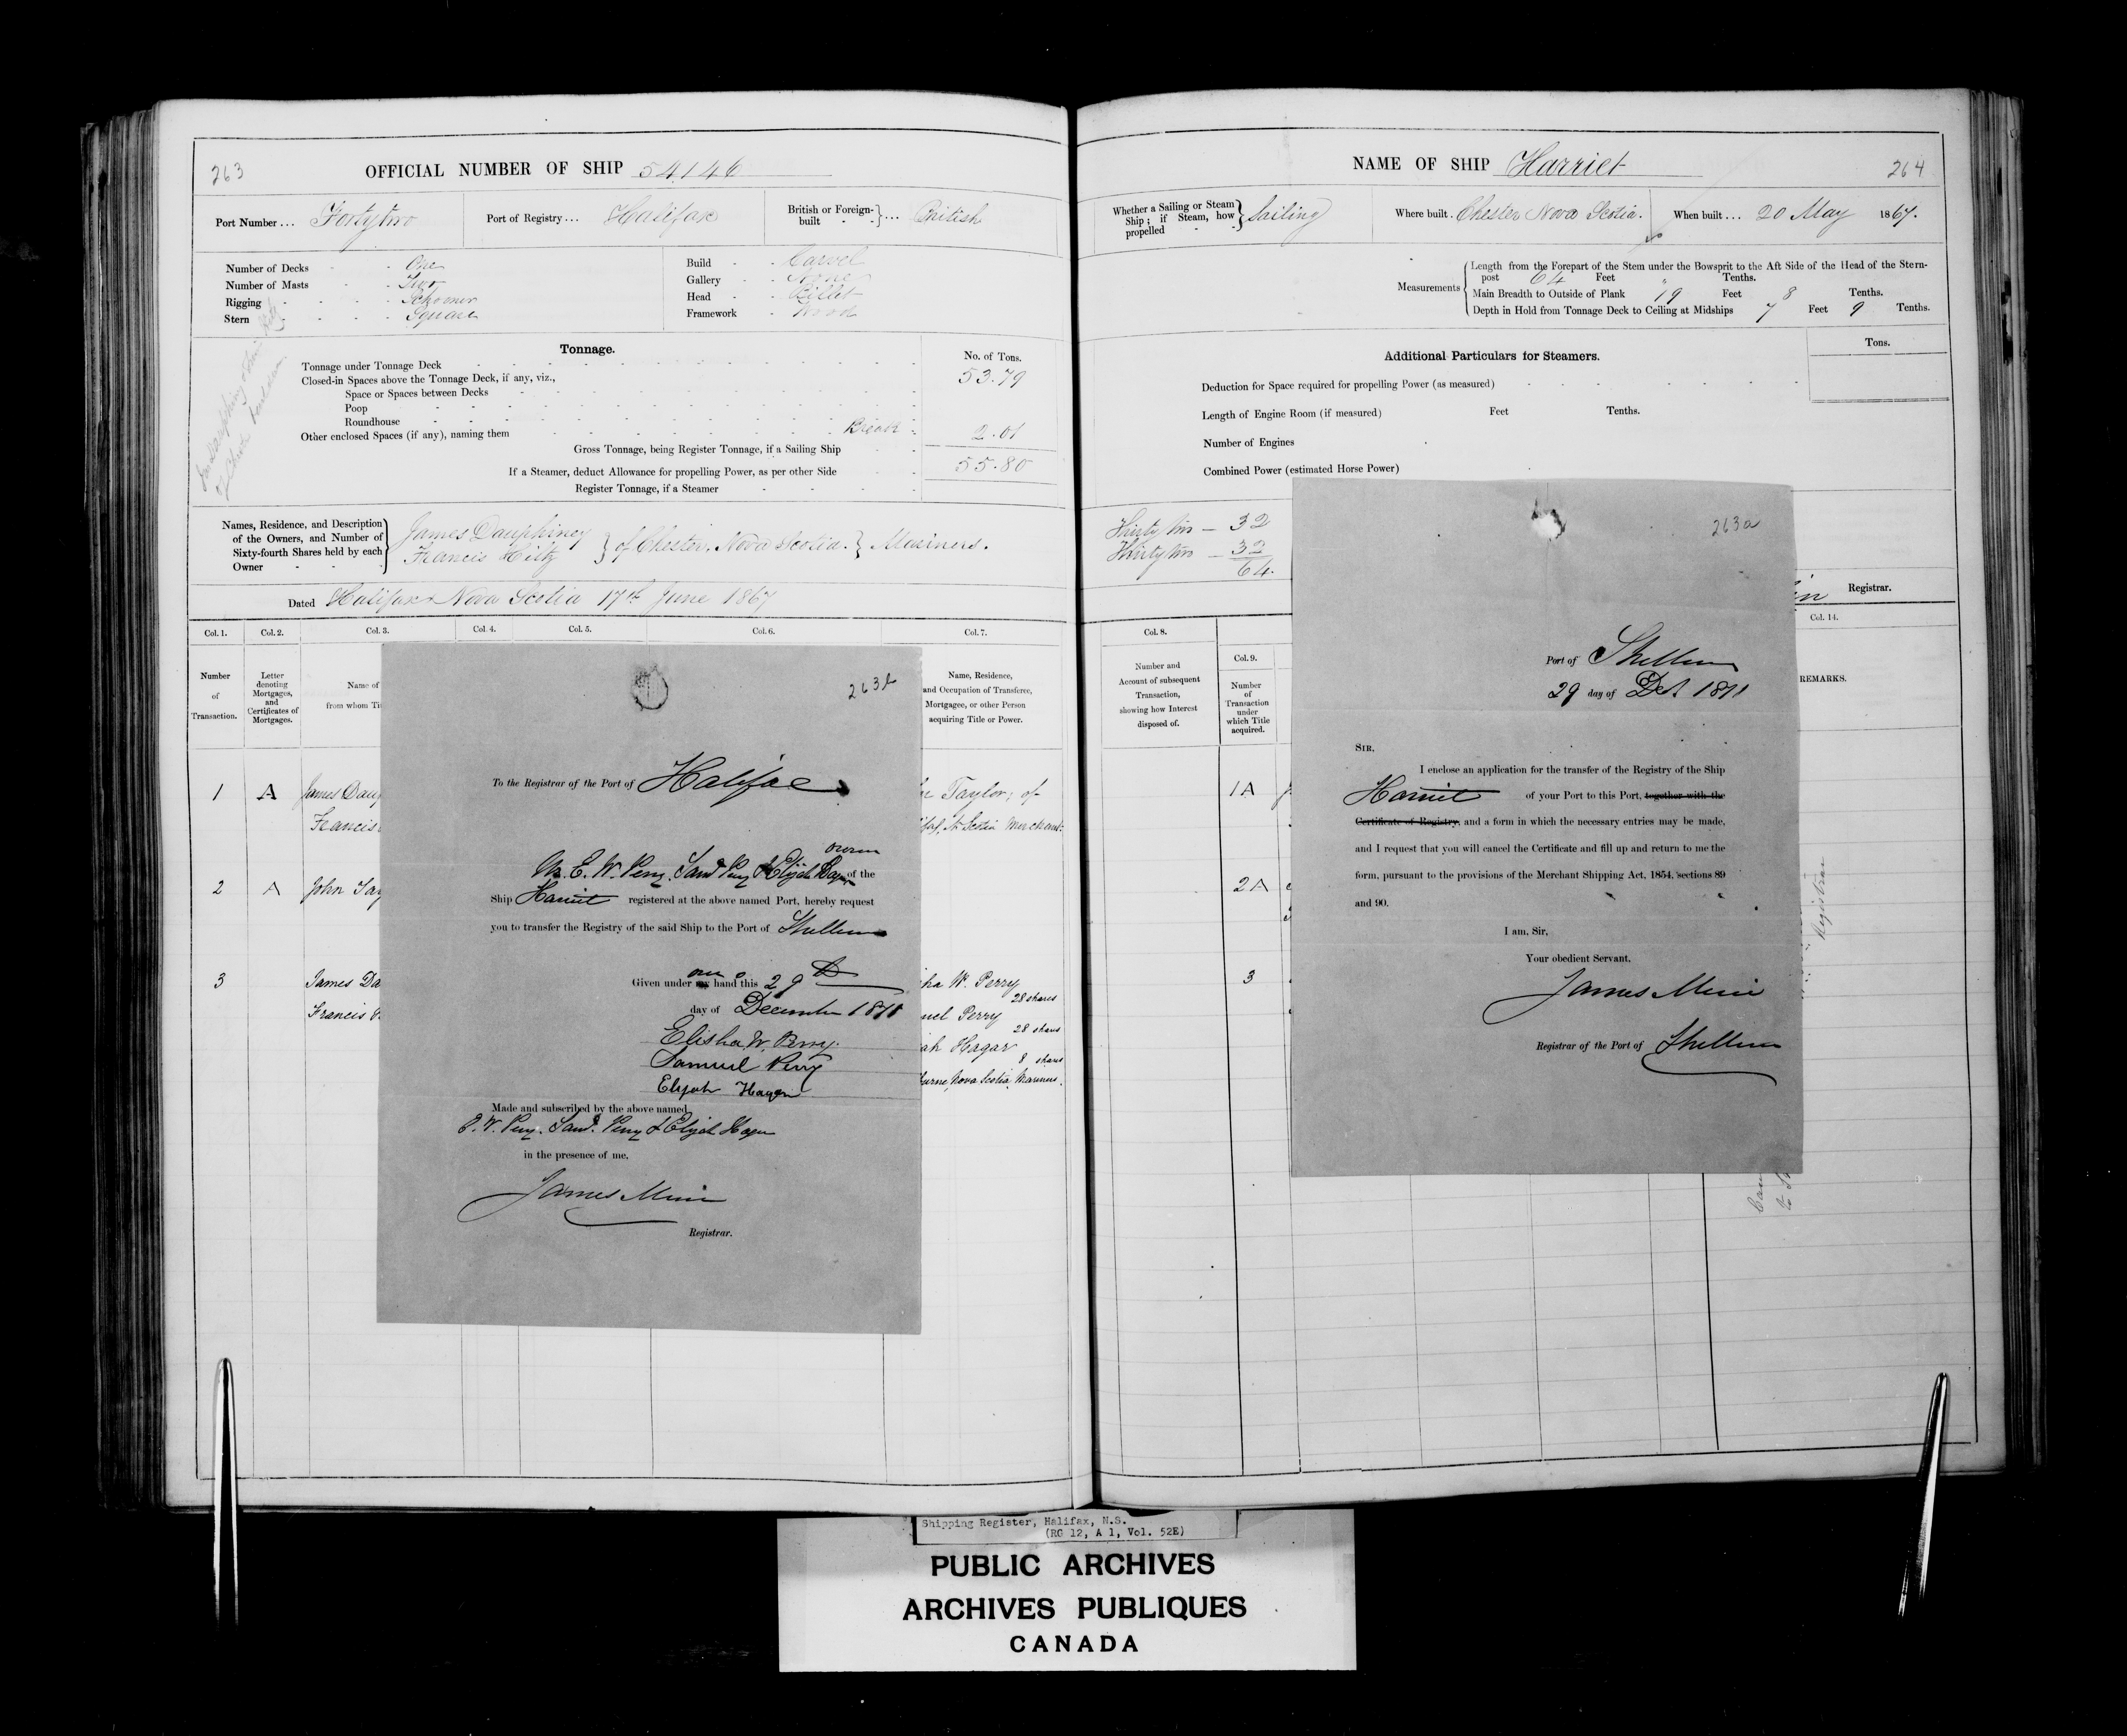 263
OFFICIAL NUMBER OF SHIP 54146
Port Number ... Fortytwo
Port of Registry ... Halifax
British or Foreign-built } ... British
Number of Decks - - One
Number of Masts - - Two
Rigging - - - - Schooner
Stern - - - - Square
Build - - Carvel
Gallery - - None
Head - - Billet
Framework - Wood
Tonnage.
No. of Tons.
Tonnage under Tonnage Deck
53.79
Closed-in Spaces above the Tonnage Deck, if any, viz.,
Space or Spaces between Decks
Poop
Roundhouse
Other enclosed Spaces (if any), naming them Break
2.01
Gross Tonnage, being Register Tonnage, if a Sailing Ship
55.80
If a Steamer, deduct Allowance for propelling Power, as per other Side
Register Tonnage, if a Steamer
Names, Residence, and Description
of the Owners, and Number of
Sixty-fourth Shares held by each
Owner
James Dauphiney
Francis Hiltz
} of Chester, Nova Scotia. } Mariners.
Dated Halifax Nova Scotia 17th June 1867
Col. 1. Col. 2. Col. 3. Col. 4. Col. 5. Col. 6. Col. 7.
Number of Transaction.
Letter denoting Mortgages, and Certificates of Mortgages.
Name of
from whom Ti
Name, Residence,
and Occupation of Transferee,
Mortgagee, or other Person
acquiring Title or Power.
1 A James Daup
Francis
Taylor, of
N. Scotia Merchant
2 A John Tay
3 James Da
Francis
ha W. Perry
28 shares
uel Perry
28 shares
ah Hagar
8 shares
burne, Nova Scotia, Mariners.
263b
To the Registrar of the Port of Halifax
owners
We E. W. Perry, Saml Perry & Elijah Hagar of the
Ship Harriet registered at the above named Port, hereby request
you to transfer the Registry of the said Ship to the Port of Shelburne
Given under my our hand this 29th
day of December 1871
Elisha W. Perry.
Samuel Perry
Elijah Hagar
Made and subscribed by the above named
E. W. Perry. Saml. Perry & Elijah Hagar
in the presence of me,
James Muir
Registrar.
NAME OF SHIP Harriet
264
Whether a Sailing or Steam
Ship; if Steam, how
propelled
} Sailing
Where built. Chester Nova Scotia.
When built ... 20 May 1867.
Measurements
Length from the Forepart of the Stem under the Bowsprit to the Aft Side of the Head of the Stern-
post 64 Feet Tenths.
Main Breadth to Outside of Plank 19 Feet 8 Tenths.
Depth in Hold from Tonnage Deck to Ceiling at Midships 7 Feet 9 Tenths.
Additional Particulars for Steamers.
Tons.
Deduction for Space required for propelling Power (as measured)
Length of Engine Room (if measured) Feet Tenths.
Number of Engines
Combined Power (estimated Horse Power)
Thirty two — 32
Thirty two — 32
64.
Registrar.
Col. 8. Col. 9. Col. 14.
Number and
Account of subsequent
Transaction,
showing how Interest
disposed of.
Number
of
Transaction
under
which Title
acquired.
REMARKS.
1A
2A
3
Registrar
263a
Port of Shelburne
29 day of Dec 1871
SIR,
I enclose an application for the transfer of the Registry of the Ship
Harriet of your Port to this Port, together with the
Certificate of Registry, and a form in which the necessary entries may be made,
and I request that you will cancel the Certificate and fill up and return to me the
form, pursuant to the provisions of the Merchant Shipping Act, 1854, sections 89
and 90.
I am, Sir,
Your obedient Servant,
James Muir
Registrar of the Port of Shelburne
Shipping Register, Halifax, N.S.
(RG 12, A 1, Vol. 52E)
PUBLIC ARCHIVES
ARCHIVES PUBLIQUES
CANADA